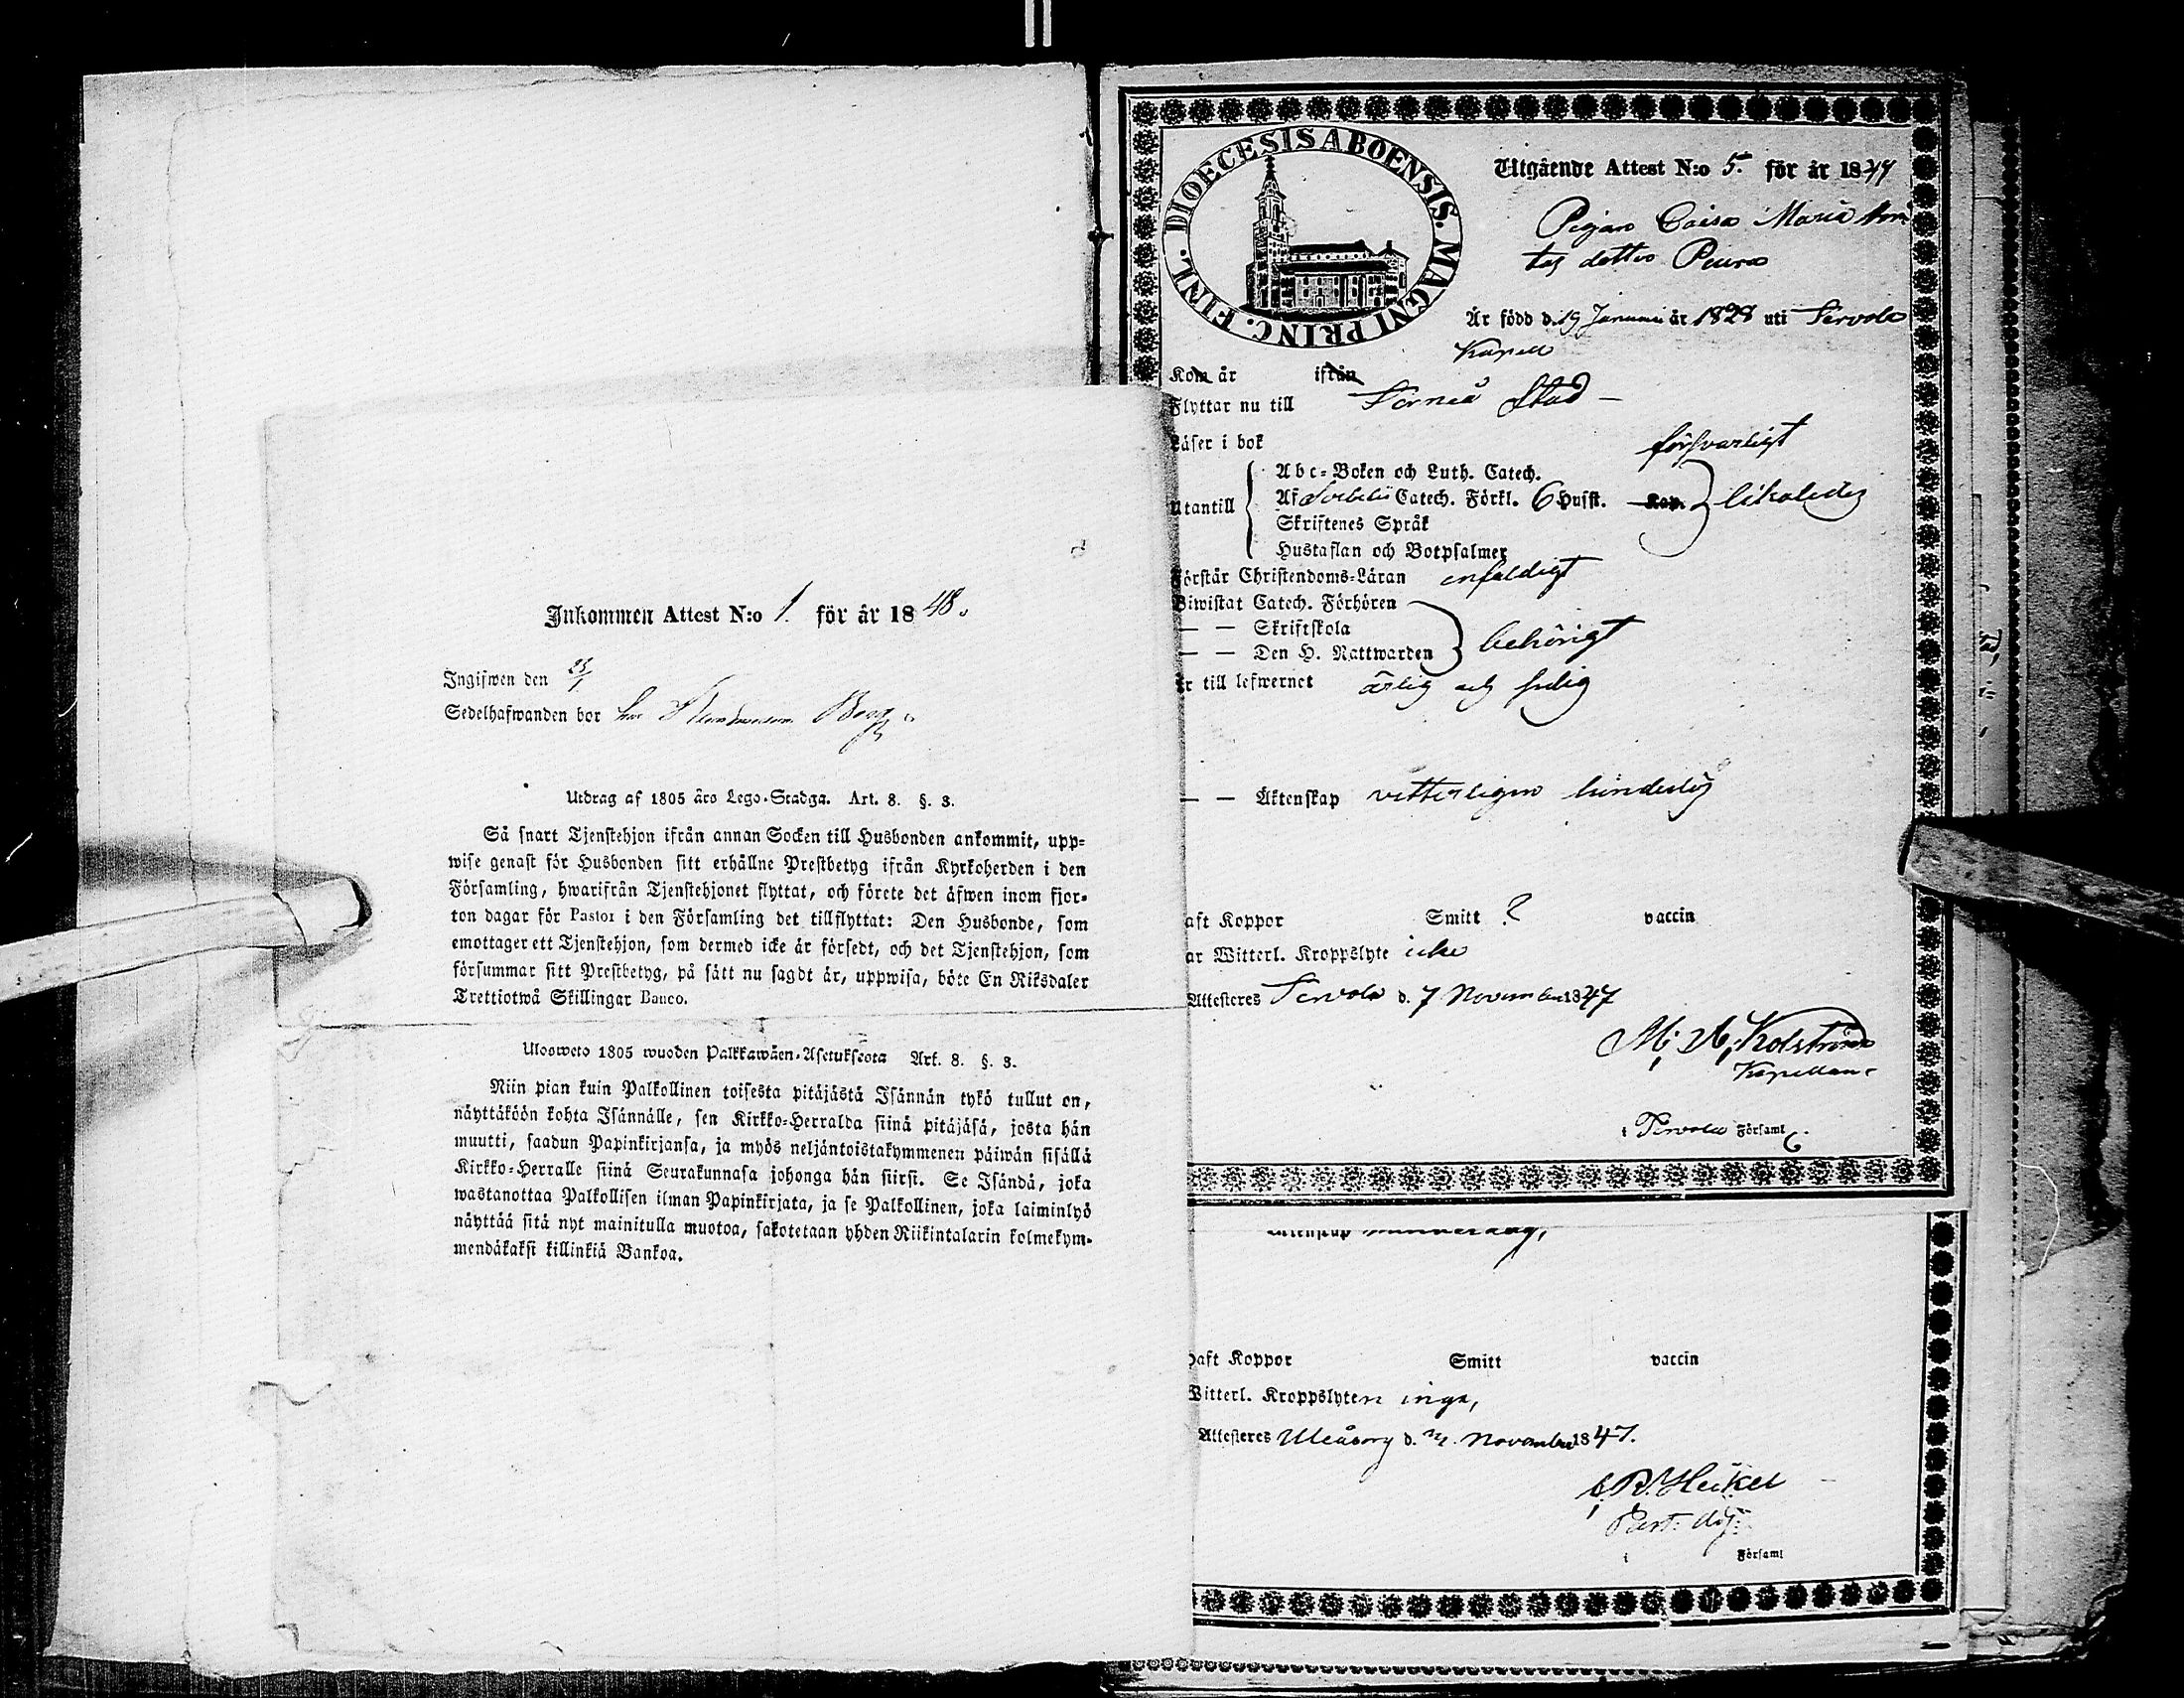 Inkommen Attest N:o 1. för år 1848.
Ingifwen den 23/1
Sedelhafwanden bor hos Borg
Utdrag af 1805 års Lego-Stadga. Art. 8. §. 3.
Så snart Tjenstehjon ifrån annan Socken till Husbonden ankommit, upp-
wise genast för Husbonden sitt erhållne Prestbetyg ifrån Kyrkoherden i den
Församling, hwarifrån Tjenstehjonet flyttat, och förete det äfwen inom fjor-
ton dagar för Pastor i den Församling det tillflyttat: Den Husbonde, som
emottager ett Tjenstehjon, som dermed icke är försedt, och det Tjenstehjon, som
försummar sitt Prestbetyg, på sätt nu sagdt är, uppwisa, böte En Riksdaler
Trettiotwå Skillingar Banco.
Ulosweto 1805 wuoden Palkkawäen-Asetuksesta Art. 8. §. 3.
Niin pian kuin Palkollinen toisesta pitäjästä Isännän tykö tullut on,
näyttäköön kohta Isännälle, sen Kirkko-Herralda siinä pitäjäsä, josta hän
muutti, saadun Papinkirjansa, ja myös neljäntoistakymmenen päiwän sisällä
Kirkko-Herralle siinä Seurakunnasa johonga hän siirsi. Se Isändä, joka
wastanottaa Palkollisen ilman Papinkirjata, ja se Palkollinen, joka laiminlyö
näyttää sitä nyt mainitulla muotoa, sakotetaan yhden Riikintalarin kolmekym-
mendäkaksi killinkiä Bankoa.
DIOECESIS ABOENSIS. MAGNI PRINC. FINL.
Utgående Attest N:o 5. för år 1847
Pigan Caisa Maria An
tes dotter Peura
Är född d. 19 Januari år 1828 uti Tervola
Kapell
Kom år ifrån
Flyttar nu till Torneå Stad —
Läser i bok försvarligt
Utantill
Abc-Boken och Luth. Catech.
Af Svebelii Catech. Förkl. 6 Hufst. Kap. likaledes
Skriftenes Språk
Hustaflan och Botpsalmer
Förstår Christendoms-Läran enfaldigt
Biwistat Catech. Förhören
— — Skriftskola
— — Den H. Nattwarden behörigt
Är till lefwernet ärlig och sedig
— — Äktenskap vetterligen hinderlös
aft Koppor Smitt ? vaccin
ar Witterl. Kroppslyte icke
Attesteres Tervola d. 7 November 1847
M. A. Kolström
Kapellan
i Tervola Församl
aft Koppor Smitt vaccin
Witterl. Kroppslyten inga,
Attesteres Uleåborg d. November 1847.
Heikel
Past:
i Församl